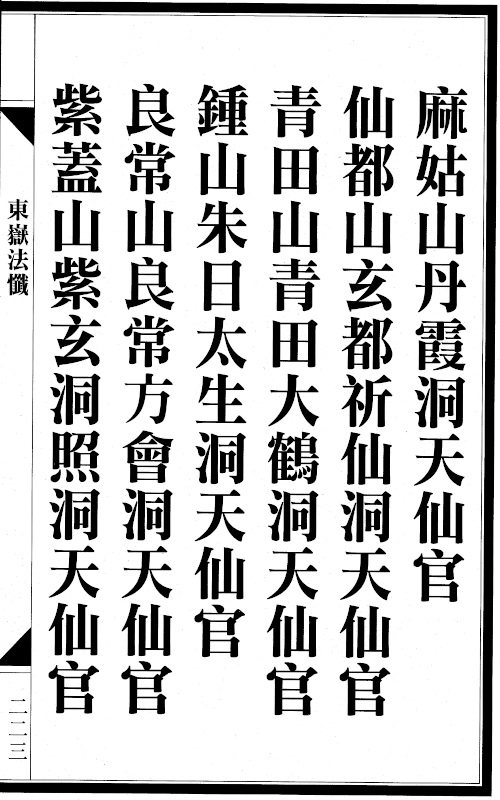 麻姑山丹霞洞天仙官
仙都山玄都祈仙洞天仙官
青田山青田大鶴洞天仙官
鍾山朱日太生洞天仙官
良常山良常方會洞天仙官
紫蓋山紫玄洞照洞天仙官
東嶽法懺
二二三